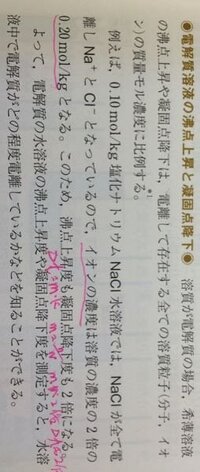 ●電解質溶液の沸点上昇と凝固点降下● 溶質が電解質の場合，希薄溶液
の沸点上昇や凝固点降下は，電離して存在する全ての溶質粒子（分子，イオ
ン）の質量モル濃度に比例する。*1
例えば，0.10 mol/kg 塩化ナトリウム NaCl 水溶液では，NaCl が全て電
離し Na⁺ と Cl⁻ となっているので，イオンの濃度は溶質の濃度の 2 倍の
0.20 mol/kg となる。このため，沸点上昇度も凝固点降下度も 2 倍になる。
よって，電解質の水溶液の沸点上昇度や凝固点降下度を測定すると，水溶
液中で電解質がどの程度電離しているかなどを知ることができる。